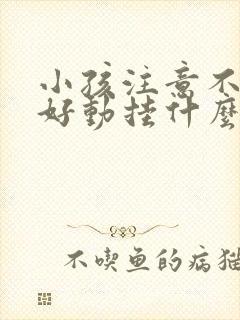 小孩注意不
好動挂什麼
不喫鱼的病猫